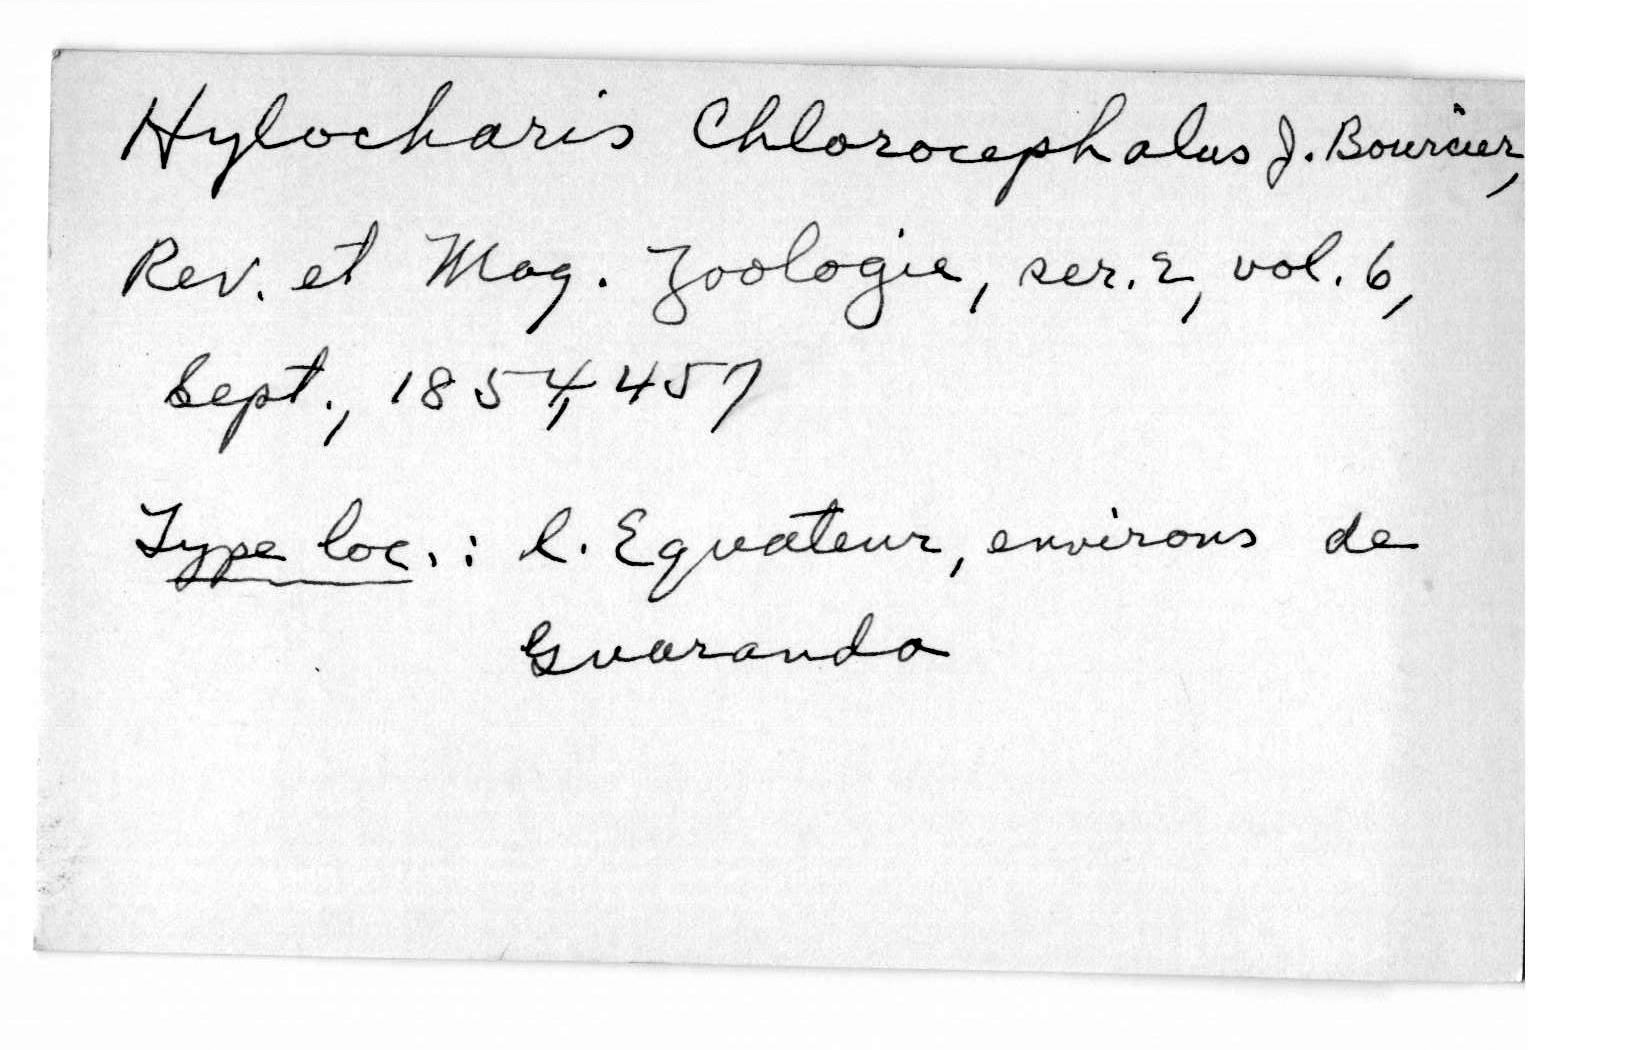 Hylocharis Chlorocephalus J. Bourcier,
Rev. et Mag. Zoologie, ser. 2, vol. 6,
Sept., 1854, 457
Type loc.: l. Equateur, environs de
Guaranda